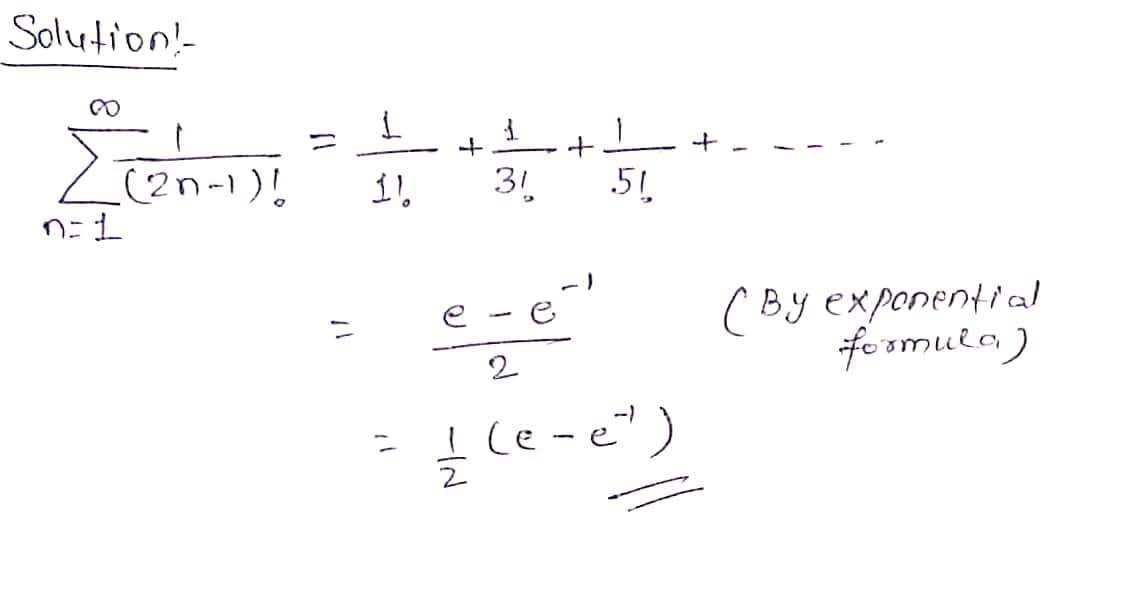 Solution:-
∞
∑ 1/(2n-1)! = 1/1! + 1/3! + 1/5! + - - - - -
n=1
= (e - e⁻¹)/2 (By exponential
formula)
= 1/2 (e - e⁻¹)